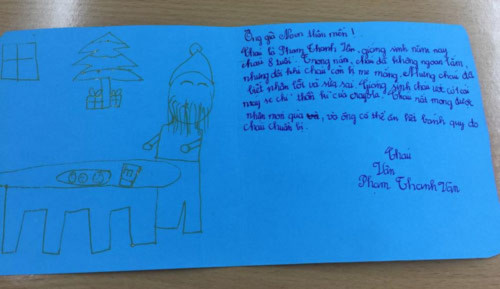 Ông già Noen thân mến!
Cháu là Phạm Thanh Vân, giáng sinh năm nay
cháu 8 tuổi. Trong năm, cháu đã không ngoan lắm,
nhưng đôi khi cháu còn bị mẹ mắng. Nhưng cháu đã
biết nhận lỗi và sửa sai. Giáng sinh cháu ước có
may se chỉ thần kì của crayola. Cháu rất mong được
nhận món quà, và ông có thể ăn hết bánh quy do
cháu chuẩn bị.
Cháu
Vân
Phạm Thanh Vân